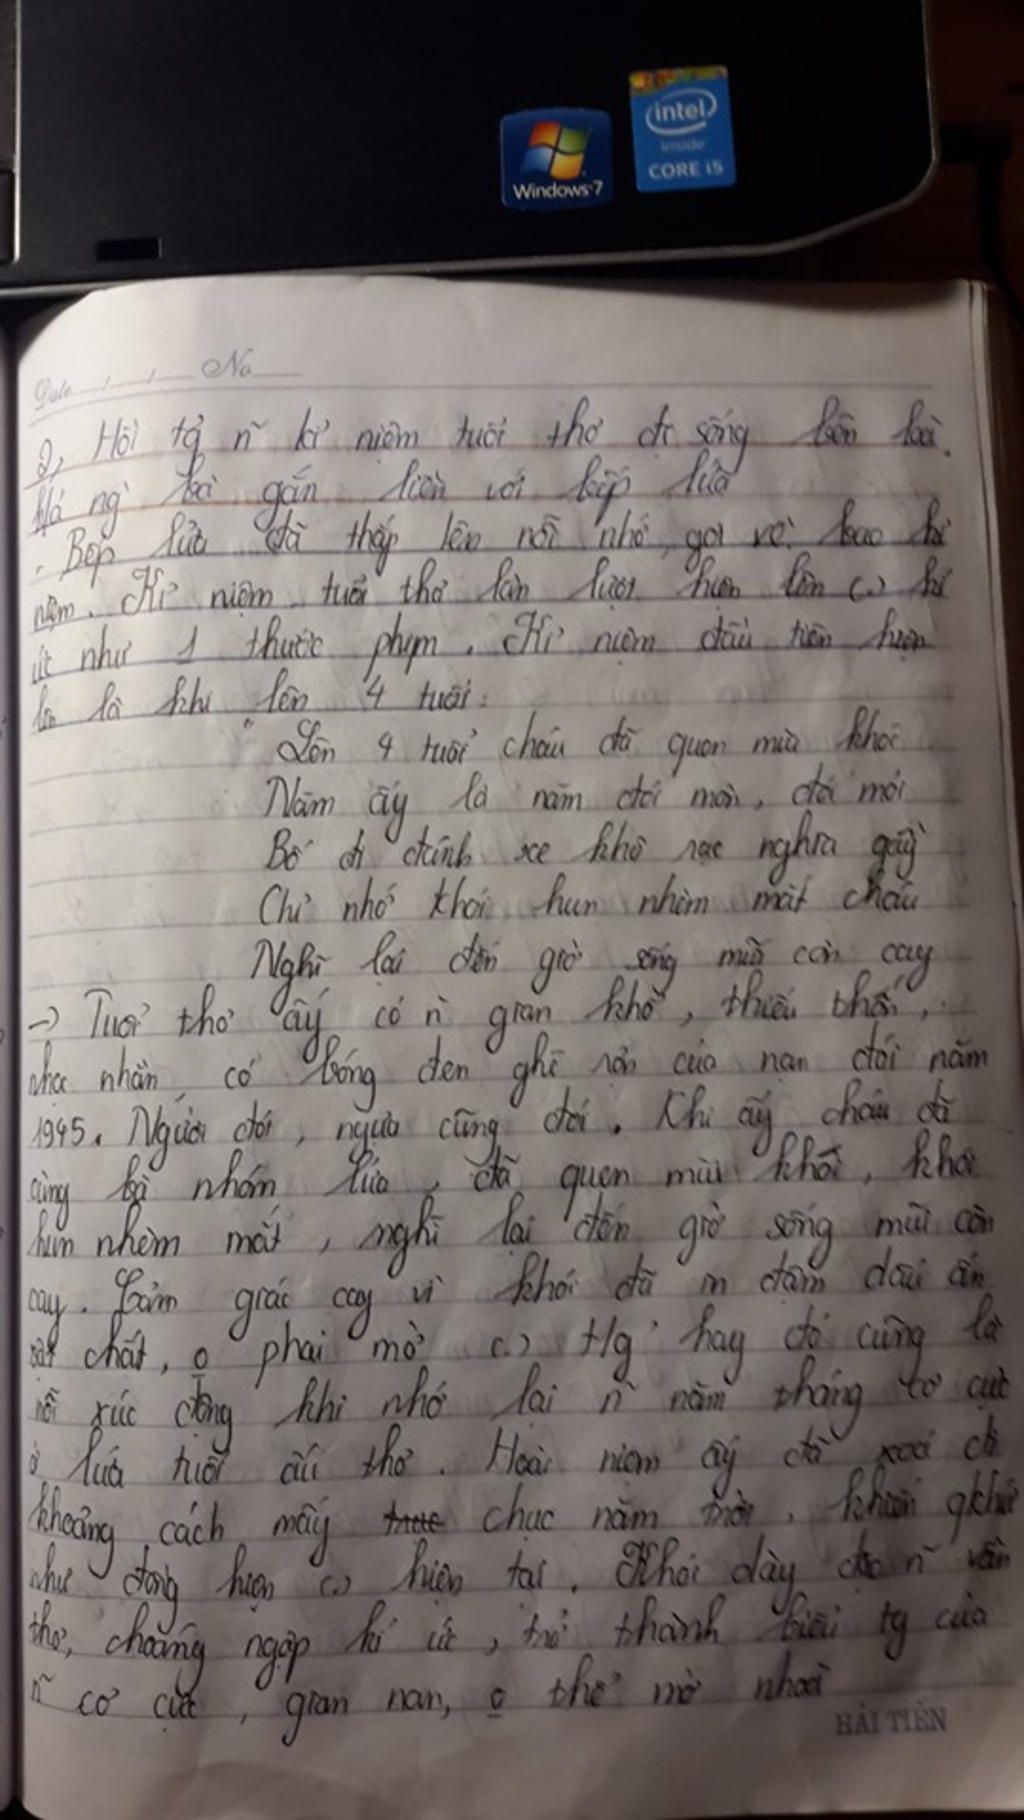 intel
inside
CORE i5
Windows 7
Date / / No
2, Hồi tg ñ kỉ niệm tuổi thơ đc sống bên bà.
Há ng bà gắn liền với bếp lửa
. Bếp lửa đã thắp lên nỗi nhớ, gọi về bao kỉ
niệm. Kỉ niệm tuổi thơ lần lượt hiện lên (.) kí
ức như 1 thước phim. Kỉ niệm đầu tiên hiện
lên là khi lên 4 tuổi:
" Lên 4 tuổi cháu đã quen mùi khói
Năm ấy là năm đói mòn, đói mỏi
Bố đi đánh xe khô rạc ngựa gầy
Chỉ nhớ khói hun nhèm mắt cháu
Nghĩ lại đến giờ sống mũi còn cay
-> Tuổi thơ ấy có ñ gian khổ, thiếu thốn,
nhọc nhằn có bóng đen ghê rợn của nạn đói năm
1945. Người đói, ngựa cũng đói. Khi ấy cháu đã
cùng bà nhóm lửa, đã quen mùi khói, khói
hun nhèm mắt, nghĩ lại đến giờ sống mũi còn
cay. Cảm giác cay vì khói đã in đậm dấu ấn
chất, o phai mờ (.) Hg hay đó cũng là
nỗi xúc động khi nhớ lại ñ năm tháng cơ cực
ở lứa tuổi ấu thơ. Hoài niệm ấy đã xoá đi
khoảng cách mấy chục năm trời, khiến qkhứ
như đang hiện (.) hiện tại. Khói dày đặc ñ vần
thơ, choáng ngợp kí ức, trở thành biểu tg của
ñ cơ cực, gian nan, o thể mờ nhoà
HẢI TIẾN